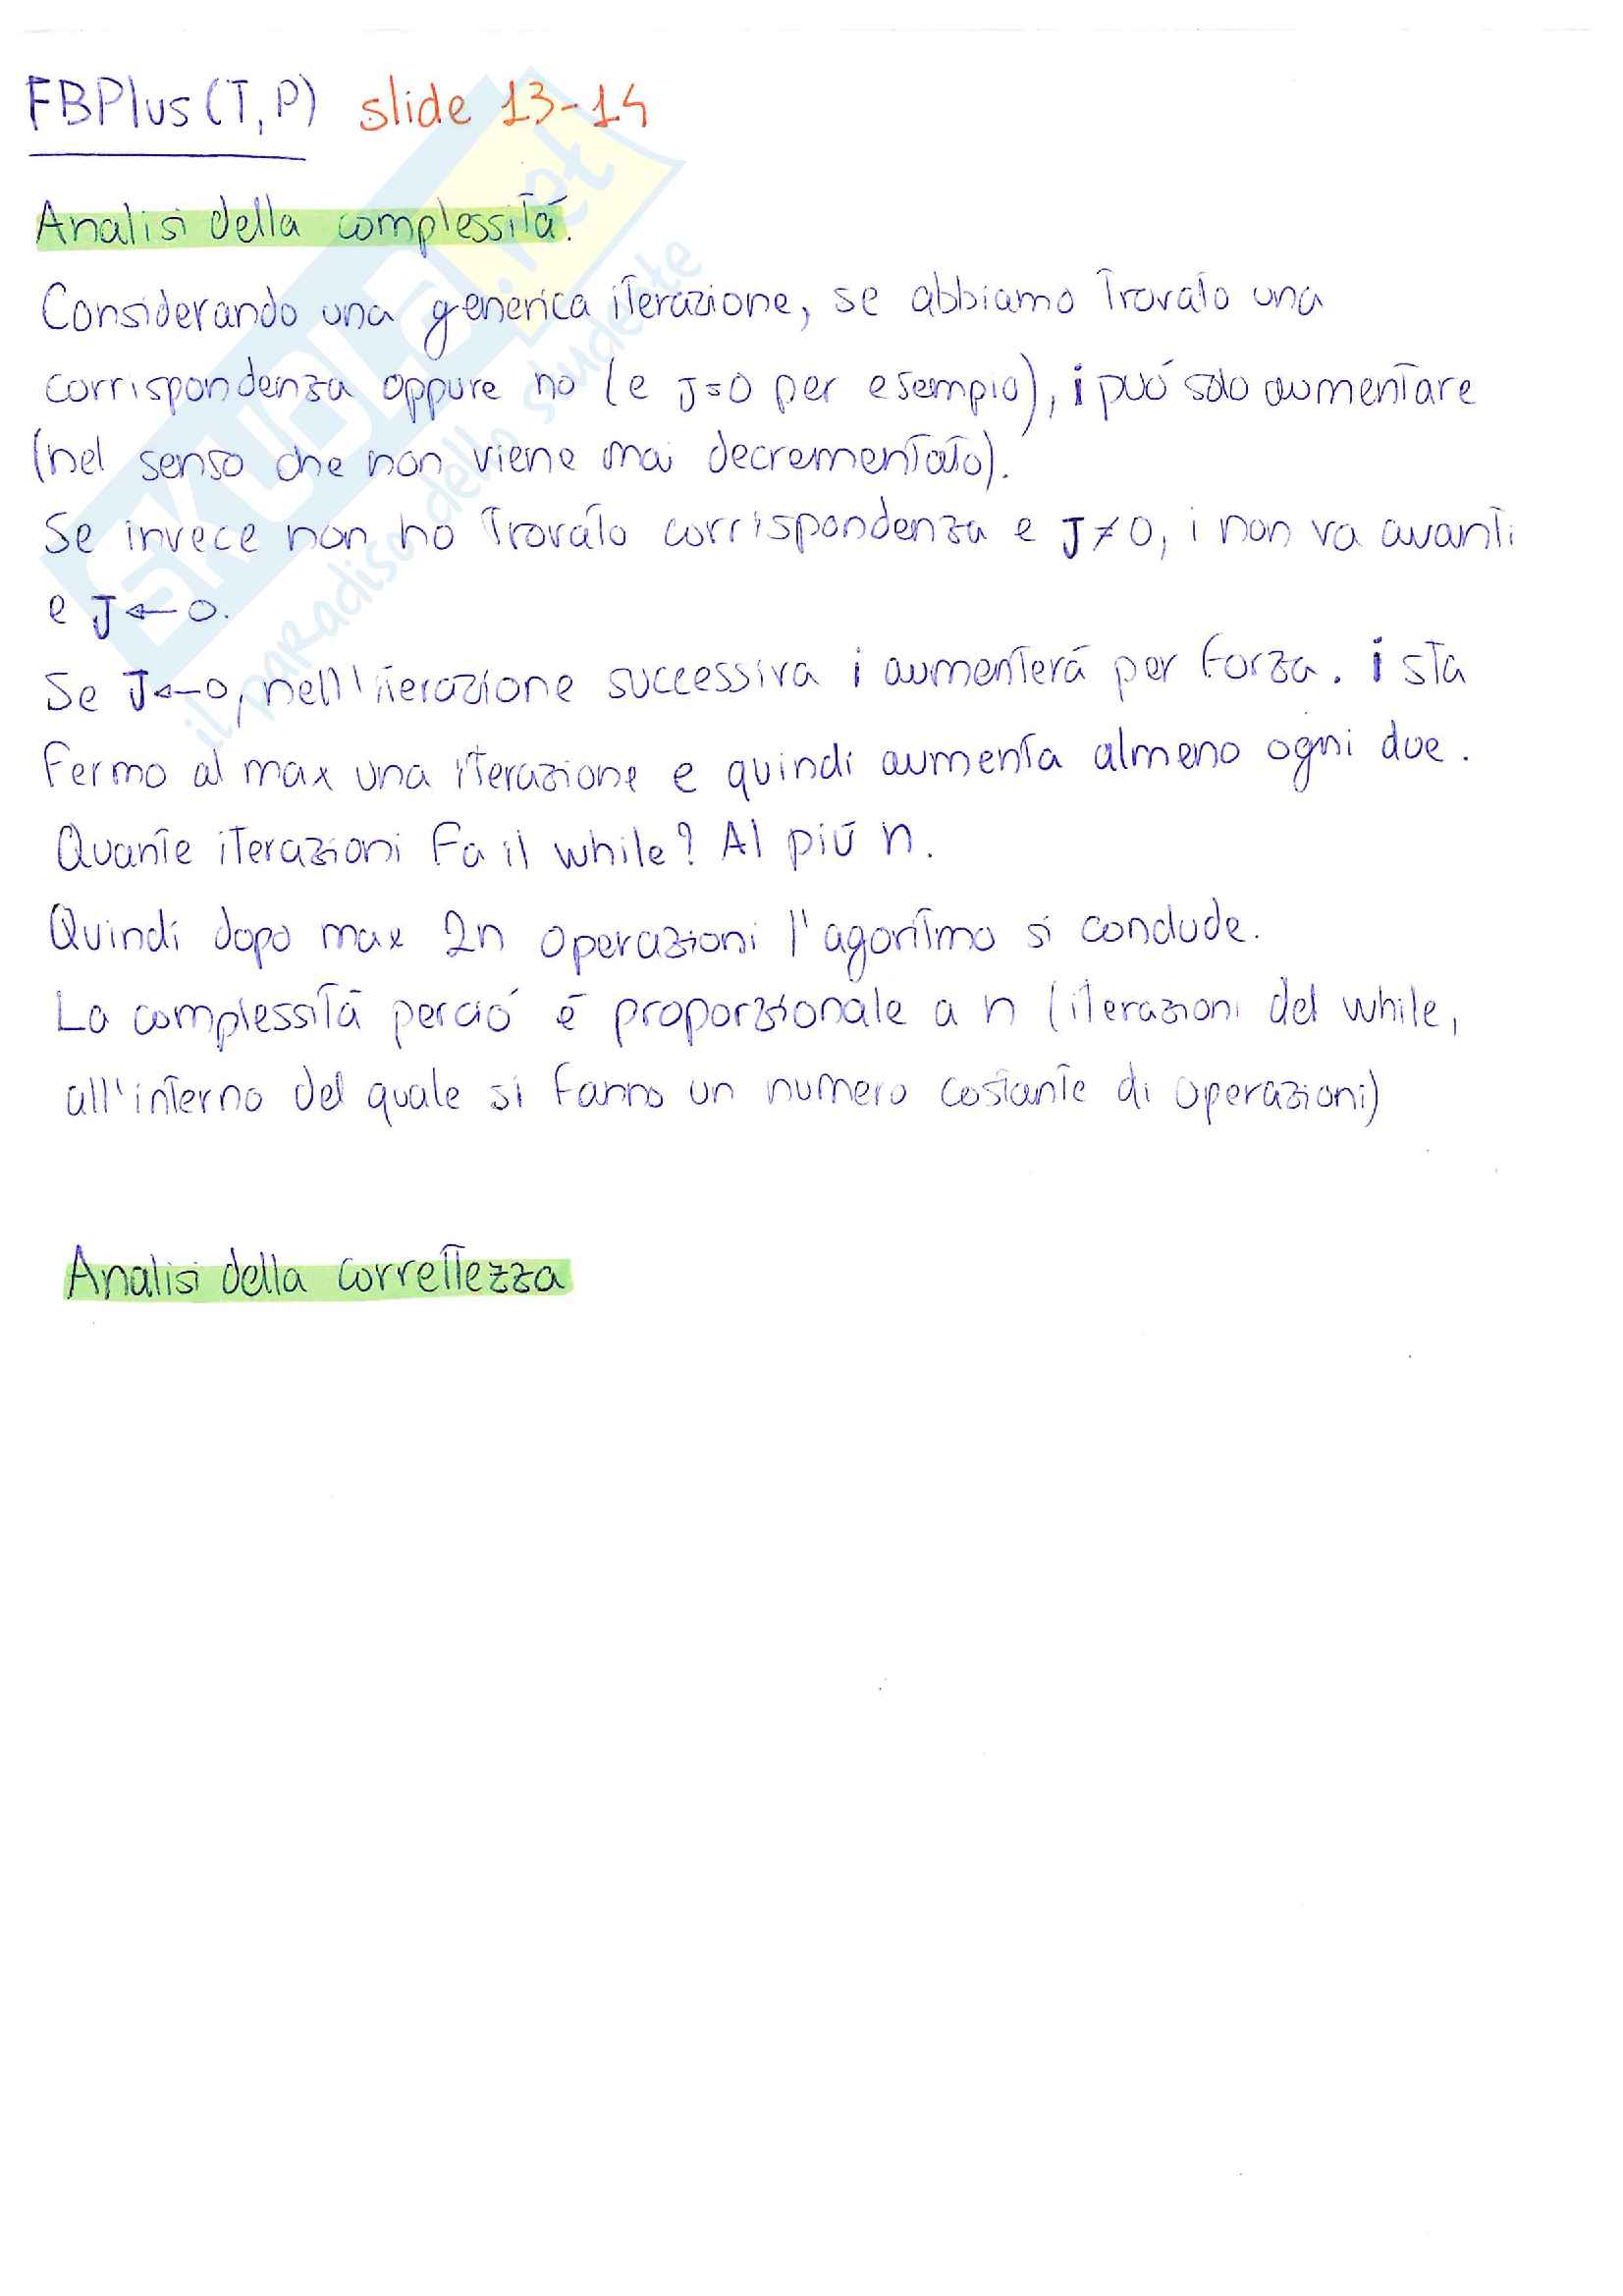 FBPlus(T,P) slide 13-14
Analisi della complessità.
Considerando una generica iterazione, se abbiamo trovato una
corrispondenza oppure no (e J=0 per esempio), i può solo aumentare
(nel senso che non viene mai decrementato).
Se invece non ho trovato corrispondenza e J≠0, i non va avanti
e J←0.
Se J←0, nell'iterazione successiva i aumenterà per forza. i sta
fermo al max una iterazione e quindi aumenta almeno ogni due.
Quante iterazioni fa il while? Al più n.
Quindi dopo max 2n operazioni l'agoritmo si conclude.
La complessità perciò è proporzionale a n (iterazioni del while,
all'interno del quale si fanno un numero costante di operazioni)
Analisi della correttezza
SKUOLA.net
il paradiso dello studente